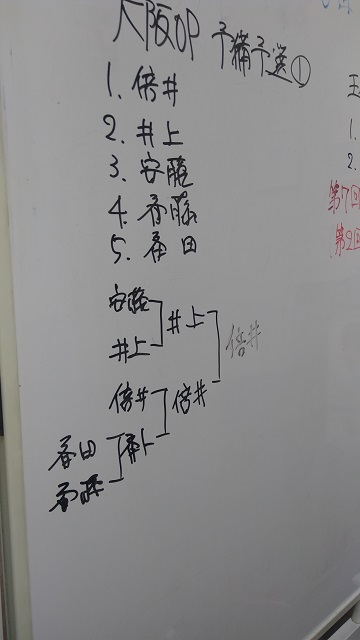 大阪OP 予備予選①
1. 倍井
2. 井上
3. 安藤
4. 斎藤
5. 番田
安藤
井上
井上
倍井
倍井
倍井
番田
斎藤
王
1.
2.
第7回
第9回